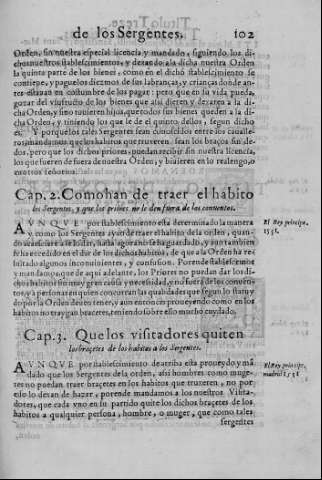 de los Sergentes. 102
Orden, sin nuestra especial licencia y mandado, siguiendo los di-
chos nuestros establescimientos, y dexando a la dicha nuestra Orden
la quinta parte de los bienes, como en el dicho establescimiento se
contiene, y paguen los diezmos de sus labranças, y crianças donde an-
tes estauan en costumbre de los pagar: pero que en su vida pueda
gozar del vsufructo de los bienes que assi dieren y dexaren a la di-
cha Orden, y sino tuuieren hijos, que todos sus bienes queden a la di-
cha Orden, y teniendo los que le de el quinto dellos, segun dicho
es. Y porque los tales Sergentes sean conoscidos entre los caualle-
ros mandamos que los habitos que truxeren, sean los braços sin de-
dos, pero que los dichos priores puedan recibir sin nuestra licencia,
los que fueren de fuera de nuestra Orden, y biuieren en lo realengo, o
otros señorios.
Cap. 2. Como han de traer el habito
los Sergentes, y que los priores no le den fuera de los contientes.
AVNQVE por establescimiento esta determinado la manera El Rey principe,
y como los Sergentes ayan de traer el habito de la orden, quan-
do acaesciere a se lo dar, hasta agora no se ha guardado, y aun tambien
se ha excedido en el dar de los dichos habitos, de que a la Orden ha re-
sultado algunos inconuenientes, y confusion. Porende establescimos
y mandamos, que de aqui adelante, los Priores no puedan dar los di-
chos habitos sin muy gran causa y necessidad, y no fuera de los conuen-
tos, y a personas en quien concurran las qualidades que segun lo statuydo
por la Orden deuen tener, y aun entonces proueyendo como en los
habitos no traygan braceres, teniendo sobre ello mucho cuydado.
Cap. 3. Que los visitadores quiten
los braçetes de los habitos a los Sergentes.
AVNQVE por establescimiento de arriba esta proueydo y má El Rey principe,
dado que los Sergentes de la orden, assi hombres como muge-
res no puedan traer braçetes en los habitos que truxeren, no por
esso lo dexan de hazer, porende mandamos a los nuestros Visita-
dores, que cada vno en su partido quite los dichos braçetes de los
habitos a qualquier persona, hombre, o muger, que como tales
sergentes